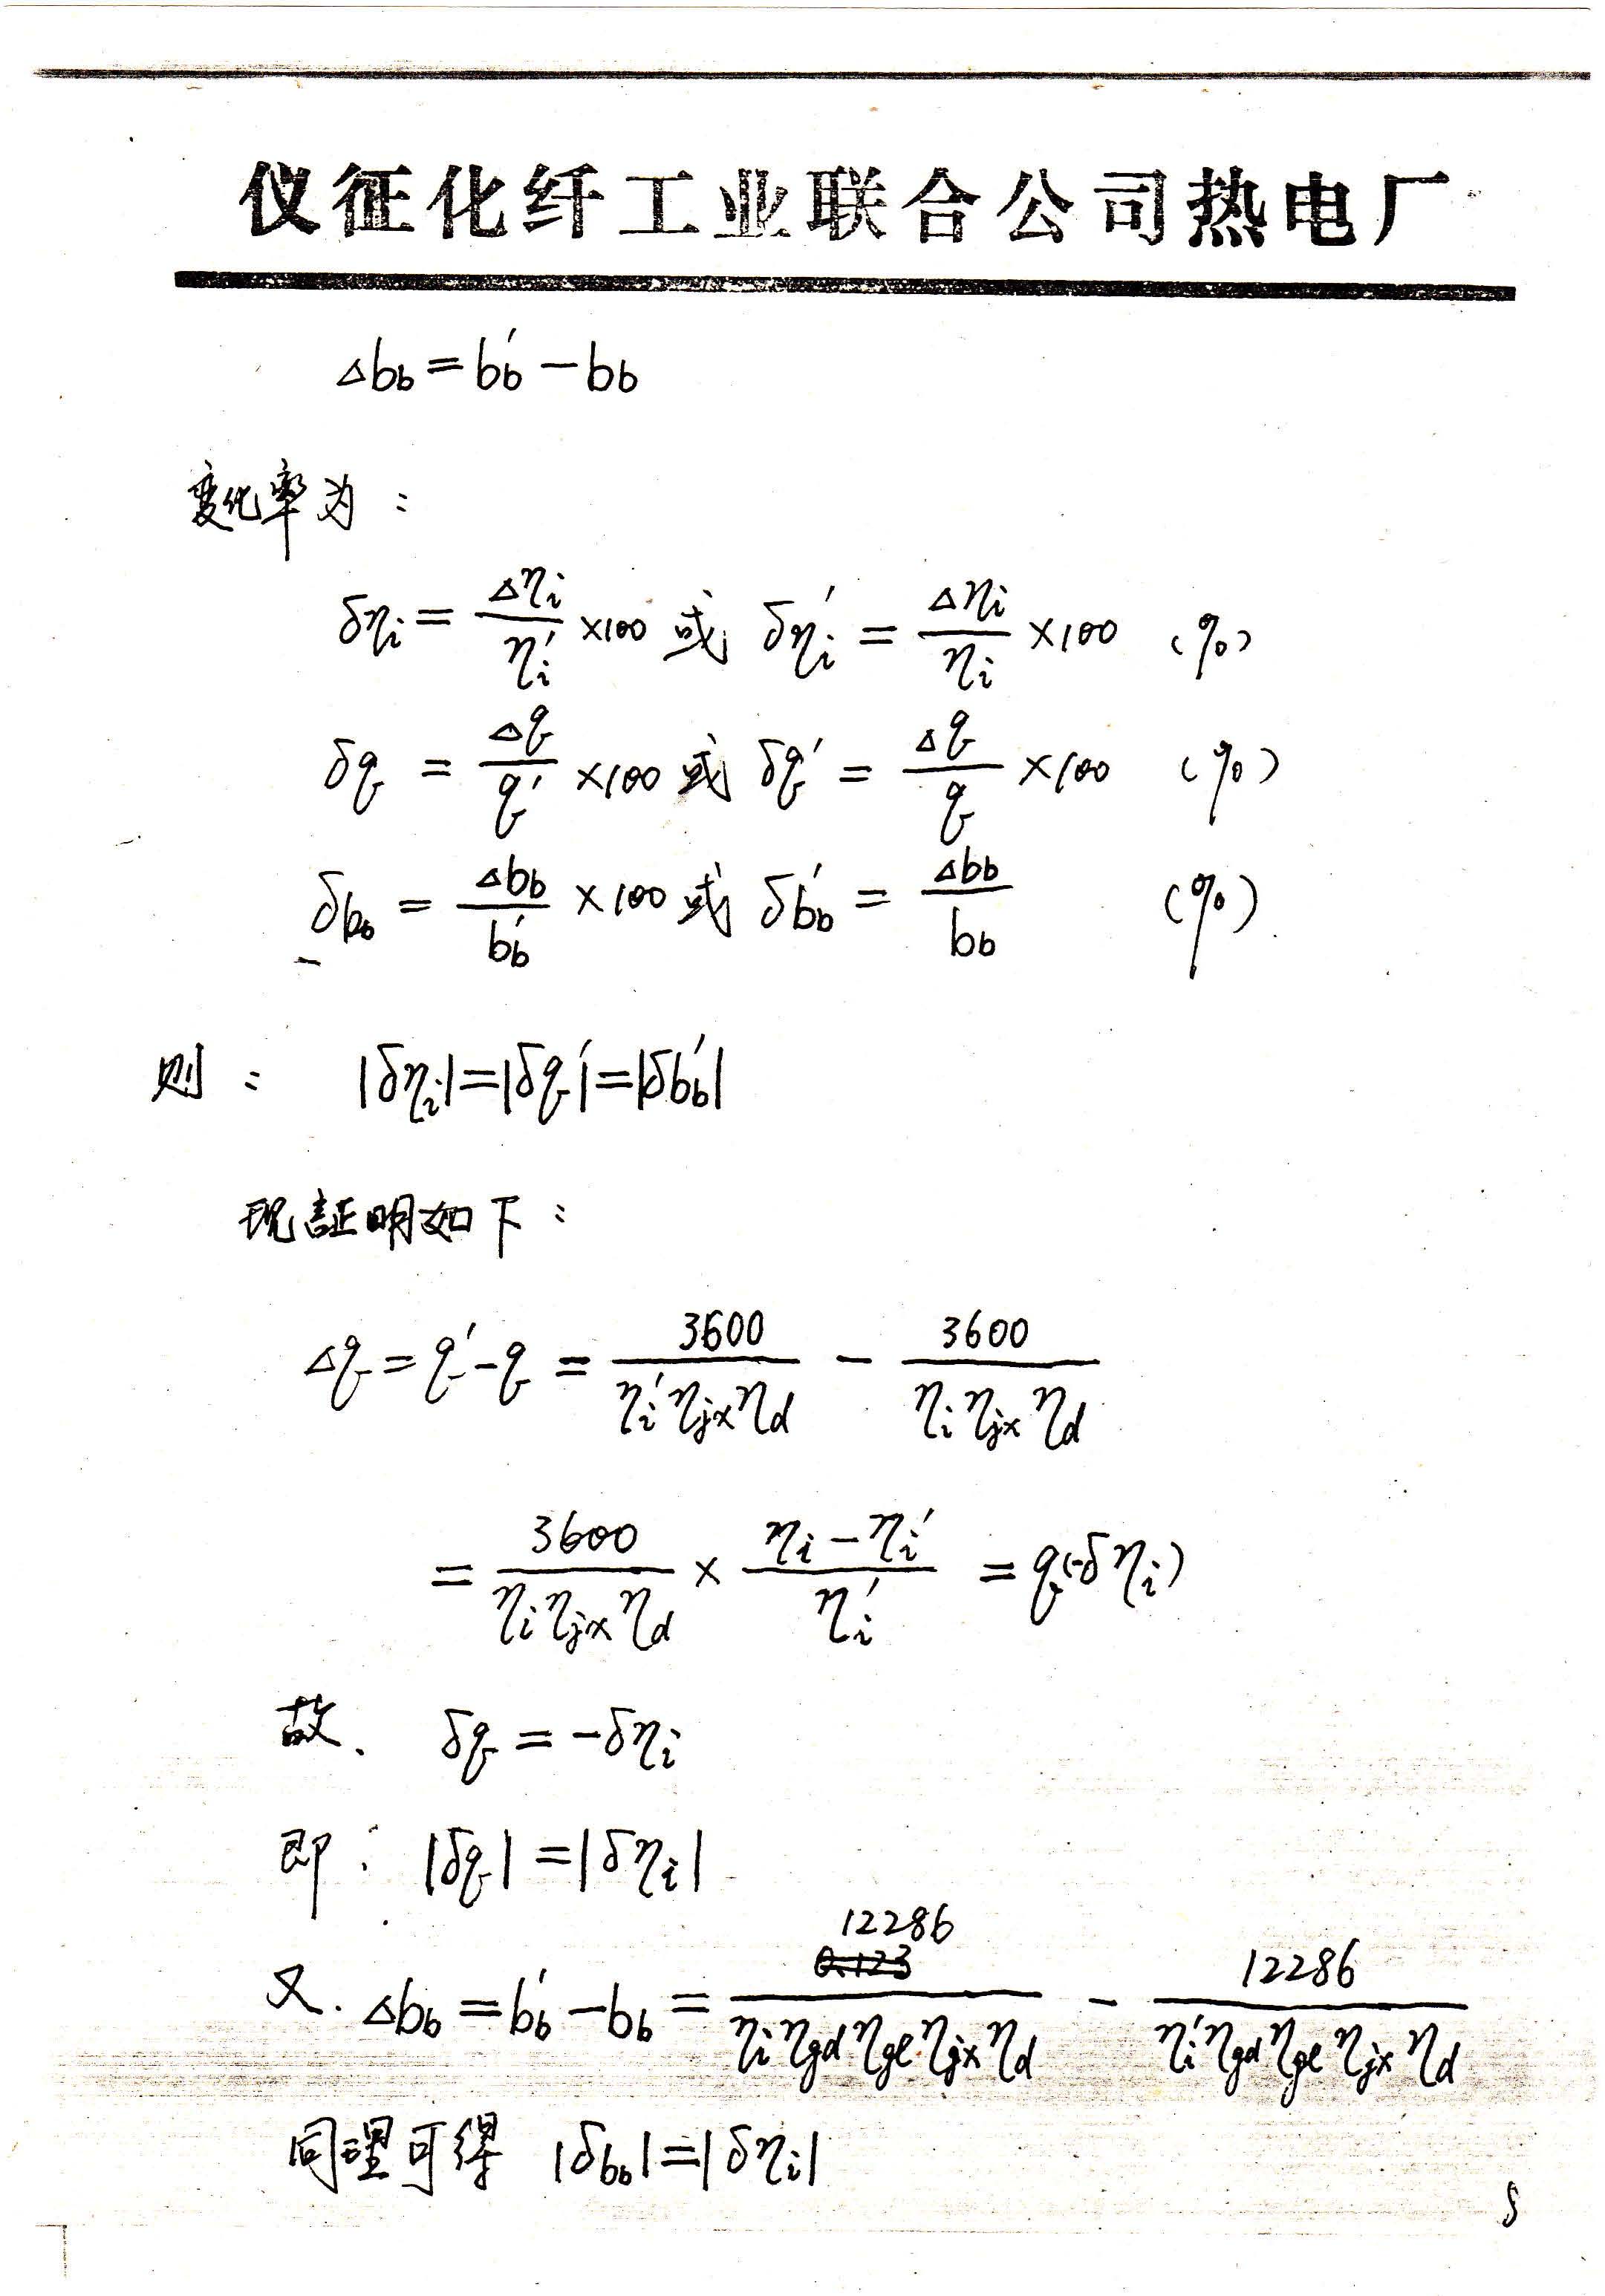 仪征化纤工业联合公司热电厂
Δb_b = b_b′ − b_b
变化率为：
δη_i = Δη_i / η_i′ ×100 或 δη_i′ = Δη_i / η_i ×100 (%)
δq = Δq / q′ ×100 或 δq′ = Δq / q ×100 (%)
δb_b = Δb_b / b_b′ ×100 或 δb_b′ = Δb_b / b_b (%)
则： |δη_i| = |δq′| = |δb_b′|
现証明如下：
Δq = q′ − q = 3600 / η_i′ η_jx η_d − 3600 / η_i η_jx η_d
= 3600 / η_i η_jx η_d × η_i − η_i′ / η_i′ = q(−δη_i)
故、 δq = −δη_i
即： |δq| = |δη_i|
又. Δb_b = b_b′ − b_b = 12286 / η_i η_gd η_gl η_jx η_d − 12286 / η_i′ η_gd η_gl η_jx η_d
同理可得 |δb_b| = |δη_i|